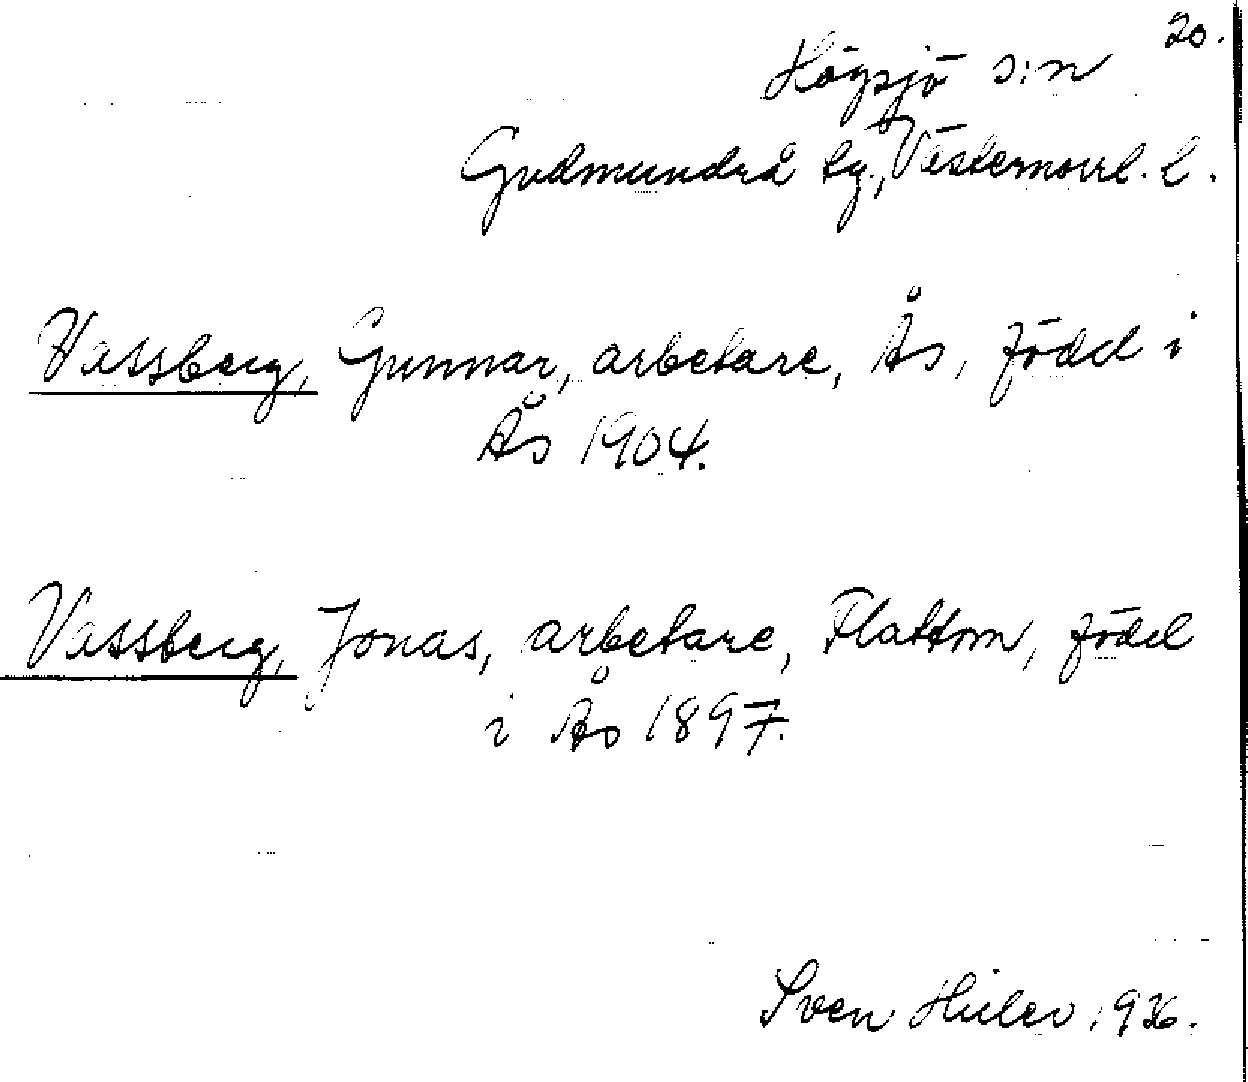 20.
Högsjö s:n
Gudmundrå tg., Västernorrl. l.
Vassberg, Gunnar, arbetare, Ås, född i
Ås 1904.
Vassberg, Jonas, arbetare, Flattom, född
i Ås 1897.
Sven Hülev 1936.